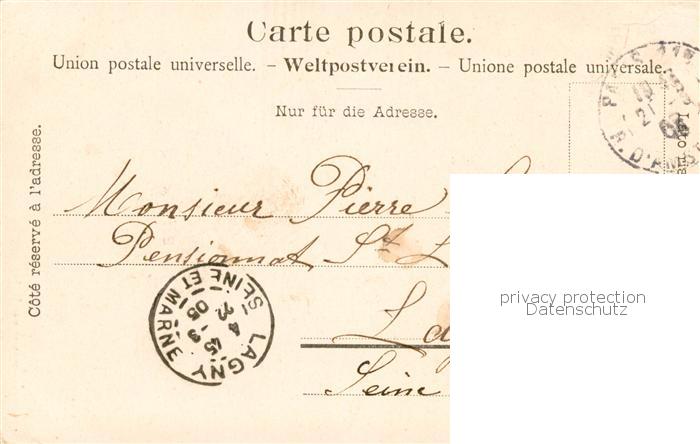 Carte postale.
Union postale universelle. – Weltpostverein. – Unione postale universale.
Nur für die Adresse.
Côté réservé à l'adresse.
Monsieur Pierre
Pensionnat St
La
Seine
LAGNY
SEINE ET MARNE
privacy protection
Datenschutz